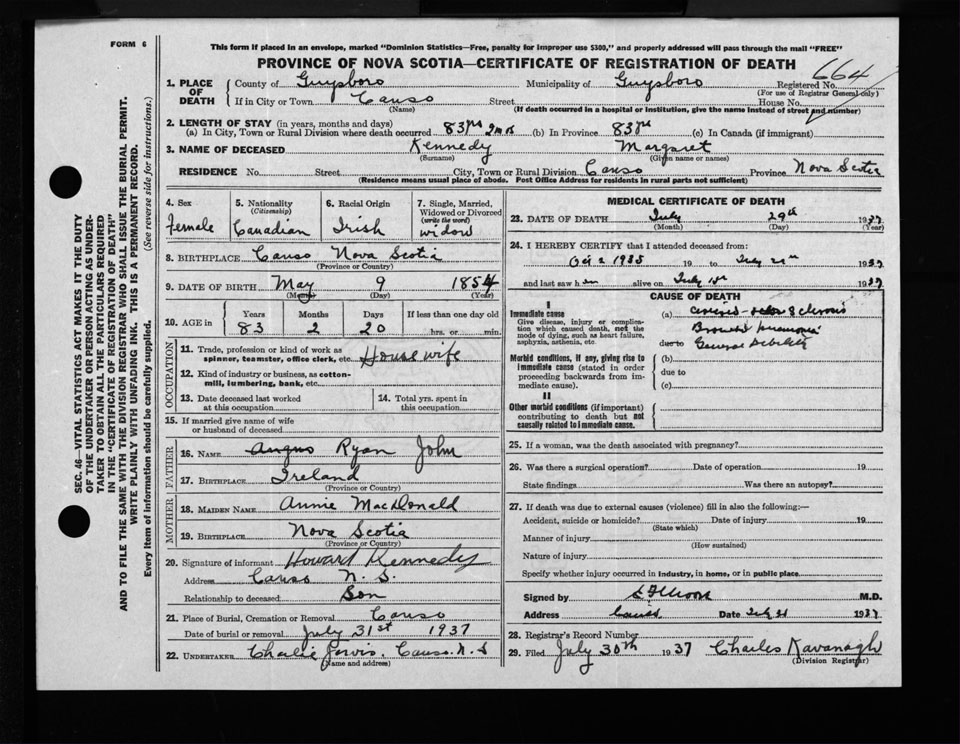 FORM 6
This form if placed in an envelope, marked "Dominion Statistics—Free, penalty for improper use $300," and properly addressed will pass through the mail "FREE"
PROVINCE OF NOVA SCOTIA—CERTIFICATE OF REGISTRATION OF DEATH
664
1. PLACE OF DEATH
County of Guysboro Municipality of Guysboro Registered No.
(For use of Registrar General only)
If in City or Town Canso Street House No.
(Name) (If death occurred in a hospital or institution, give the name instead of street and number)
2. LENGTH OF STAY (in years, months and days)
(a) In City, Town or Rural Division where death occurred 83 yrs 2 mos (b) In Province 83 yrs (c) In Canada (if immigrant)
3. NAME OF DECEASED Kennedy Margaret
(Surname) (Given name or names)
RESIDENCE No. Street City, Town or Rural Division Canso Province Nova Scotia
(Residence means usual place of abode. Post Office Address for residents in rural parts not sufficient)
SEC. 46—VITAL STATISTICS ACT MAKES IT THE DUTY
OF THE UNDERTAKER OR PERSON ACTING AS UNDER-
TAKER TO OBTAIN ALL THE PARTICULARS REQUIRED
IN THE "CERTIFICATE OF REGISTRATION OF DEATH"
AND TO FILE THE SAME WITH THE DIVISION REGISTRAR WHO SHALL ISSUE THE BURIAL PERMIT.
WRITE PLAINLY WITH UNFADING INK. THIS IS A PERMANENT RECORD.
Every item of information should be carefully supplied. (See reverse side for instructions.)
4. Sex
Female
5. Nationality
(Citizenship)
Canadian
6. Racial Origin
Irish
7. Single, Married,
Widowed or Divorced
(write the word)
widow
8. BIRTHPLACE Canso Nova Scotia
(Province or Country)
9. DATE OF BIRTH May 9 1854
(Month) (Day) (Year)
10. AGE in
Years Months Days If less than one day old
83 2 20 hrs. or min.
OCCUPATION
11. Trade, profession or kind of work as
spinner, teamster, office clerk, etc. House wife
12. Kind of industry or business, as cotton-
mill, lumbering, bank, etc.
13. Date deceased last worked
at this occupation
14. Total yrs. spent in
this occupation
15. If married give name of wife
or husband of deceased
FATHER
16. NAME Angus Ryan John
17. BIRTHPLACE Ireland
(Province or Country)
MOTHER
18. MAIDEN NAME Annie MacDonald
19. BIRTHPLACE Nova Scotia
(Province or Country)
20. Signature of informant Howard Kennedy
Address Canso N. S.
Relationship to deceased Son
21. Place of Burial, Cremation or Removal Canso
Date of burial or removal July 31st 1937
22. UNDERTAKER Charlie Jarvis. Canso. N. S
(Name and address)
MEDICAL CERTIFICATE OF DEATH
23. DATE OF DEATH July 29th 1937
(Month) (Day) (Year)
24. I HEREBY CERTIFY that I attended deceased from:
Oct 2 1935 19 to July 1937
and last saw h er alive on July 1937
CAUSE OF DEATH
I
Immediate cause
Give disease, injury or complica-
tion which caused death, not the
mode of dying, such as heart failure,
asphyxia, asthenia, etc.
(a) Sclerosis
Pneumonia
due to General Debility
Morbid conditions, if any, giving rise to
immediate cause (stated in order
proceeding backwards from im-
mediate cause).
(b)
due to
(c)
II
Other morbid conditions (if important)
contributing to death but not
causally related to immediate cause.
25. If a woman, was the death associated with pregnancy?
26. Was there a surgical operation? Date of operation 19
State findings Was there an autopsy?
27. If death was due to external causes (violence) fill in also the following:—
Accident, suicide or homicide? Date of injury 19
(State which)
Manner of injury
(How sustained)
Nature of injury
Specify whether injury occurred in industry, in home, or in public place.
Signed by M.D.
Address Canso Date July 31 1937
28. Registrar's Record Number
29. Filed July 30th 1937 Charles Kavanagh
(Division Registrar)